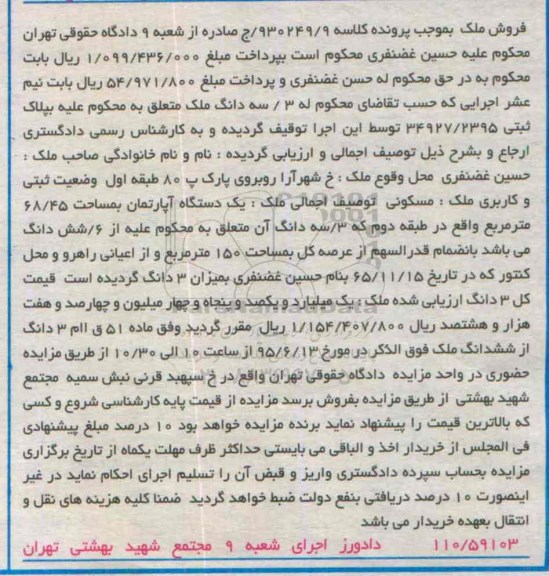 فروش ملک بموجب پرونده کلاسه ۹۳۰۲۴۹/۹/ج صادره از شعبه ۹ دادگاه حقوقی تهران
محکوم علیه حسین غضنفری محکوم است بپرداخت مبلغ ۱/۰۹۹/۴۳۶/۰۰۰ ریال بابت
محکوم به در حق محکوم له حسن غضنفری و پرداخت مبلغ ۵۴/۹۷۱/۸۰۰ ریال بابت نیم
عشر اجرایی که حسب تقاضای محکوم له ۳ / سه دانگ ملک متعلق به محکوم علیه بپلاک
ثبتی ۳۴۹۲۷/۲۳۹۵ توسط این اجرا توقیف گردیده و به کارشناس رسمی دادگستری
ارجاع و بشرح ذیل توصیف اجمالی و ارزیابی گردیده : نام و نام خانوادگی صاحب ملک :
حسین غضنفری محل وقوع ملک : خ شهرآرا روبروی پارک پ ۸۰ طبقه اول وضعیت ثبتی
و کاربری ملک : مسکونی توصیف اجمالی ملک : یک دستگاه آپارتمان بمساحت ۶۸/۴۵
مترمربع واقع در طبقه دوم که ۳/سه دانگ آن متعلق به محکوم علیه از ۶/شش دانگ
می باشد بانضمام قدرالسهم از عرصه کل بمساحت ۱۵۰ مترمربع و از اعیانی راهرو و محل
کنتور که در تاریخ ۶۵/۱۱/۱۵ بنام حسین غضنفری بمیزان ۳ دانگ گردیده است قیمت
کل ۳ دانگ ارزیابی شده ملک : یک میلیارد و یکصد و پنجاه و چهار میلیون و چهارصد و هفت
هزار و هشتصد ریال ۱/۱۵۴/۴۰۷/۸۰۰ ریال مقرر گردید وفق ماده ۵۱ ق اام ۳ دانگ
از ششدانگ ملک فوق الذکر در مورخ ۹۵/۶/۱۳ از ساعت ۱۰ الی ۱۰/۳۰ از طریق مزایده
حضوری در واحد مزایده دادگاه حقوقی تهران واقع در خ سپهبد قرنی نبش سمیه مجتمع
شهید بهشتی از طریق مزایده بفروش برسد مزایده از قیمت پایه کارشناسی شروع و کسی
که بالاترین قیمت را پیشنهاد نماید برنده مزایده خواهد بود ۱۰ درصد مبلغ پیشنهادی
فی المجلس از خریدار اخذ و الباقی می بایستی حداکثر ظرف مهلت یکماه از تاریخ برگزاری
مزایده بحساب سپرده دادگستری واریز و قبض آن را تسلیم اجرای احکام نماید در غیر
اینصورت ۱۰ درصد دریافتی بنفع دولت ضبط خواهد گردید ضمنا کلیه هزینه های نقل و
انتقال بعهده خریدار می باشد
۱۱۰/۵۹۱۰۳ دادورز اجرای شعبه ۹ مجتمع شهید بهشتی تهران